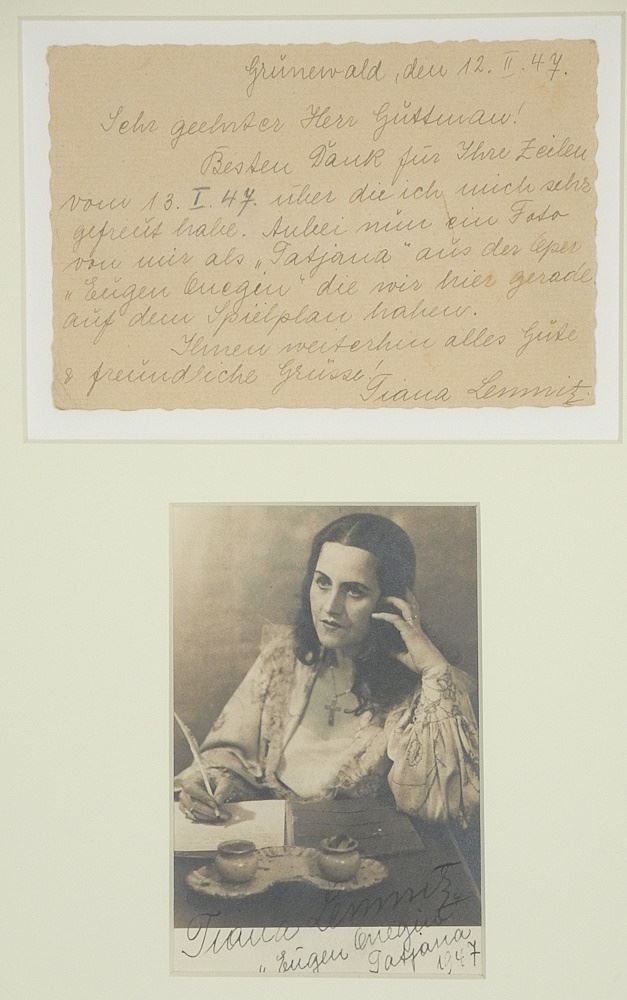 Grünewald, den 12. II. 47.
Sehr geehrter Herr Güttman!
Besten Dank für Ihre Zeilen
vom 13. I. 47. über die ich mich sehr
gefreut habe. Anbei nun ein Foto
von mir als „Tatjana" aus der Oper
„Eugen Onegin" die wir hier gerade
auf dem Spielplan haben.
Ihnen weiterhin alles Gute
& freundliche Grüsse!
Tiana Lemnitz.
Tiana Lemnitz
„Eugen Onegin"
Tatjana
1947